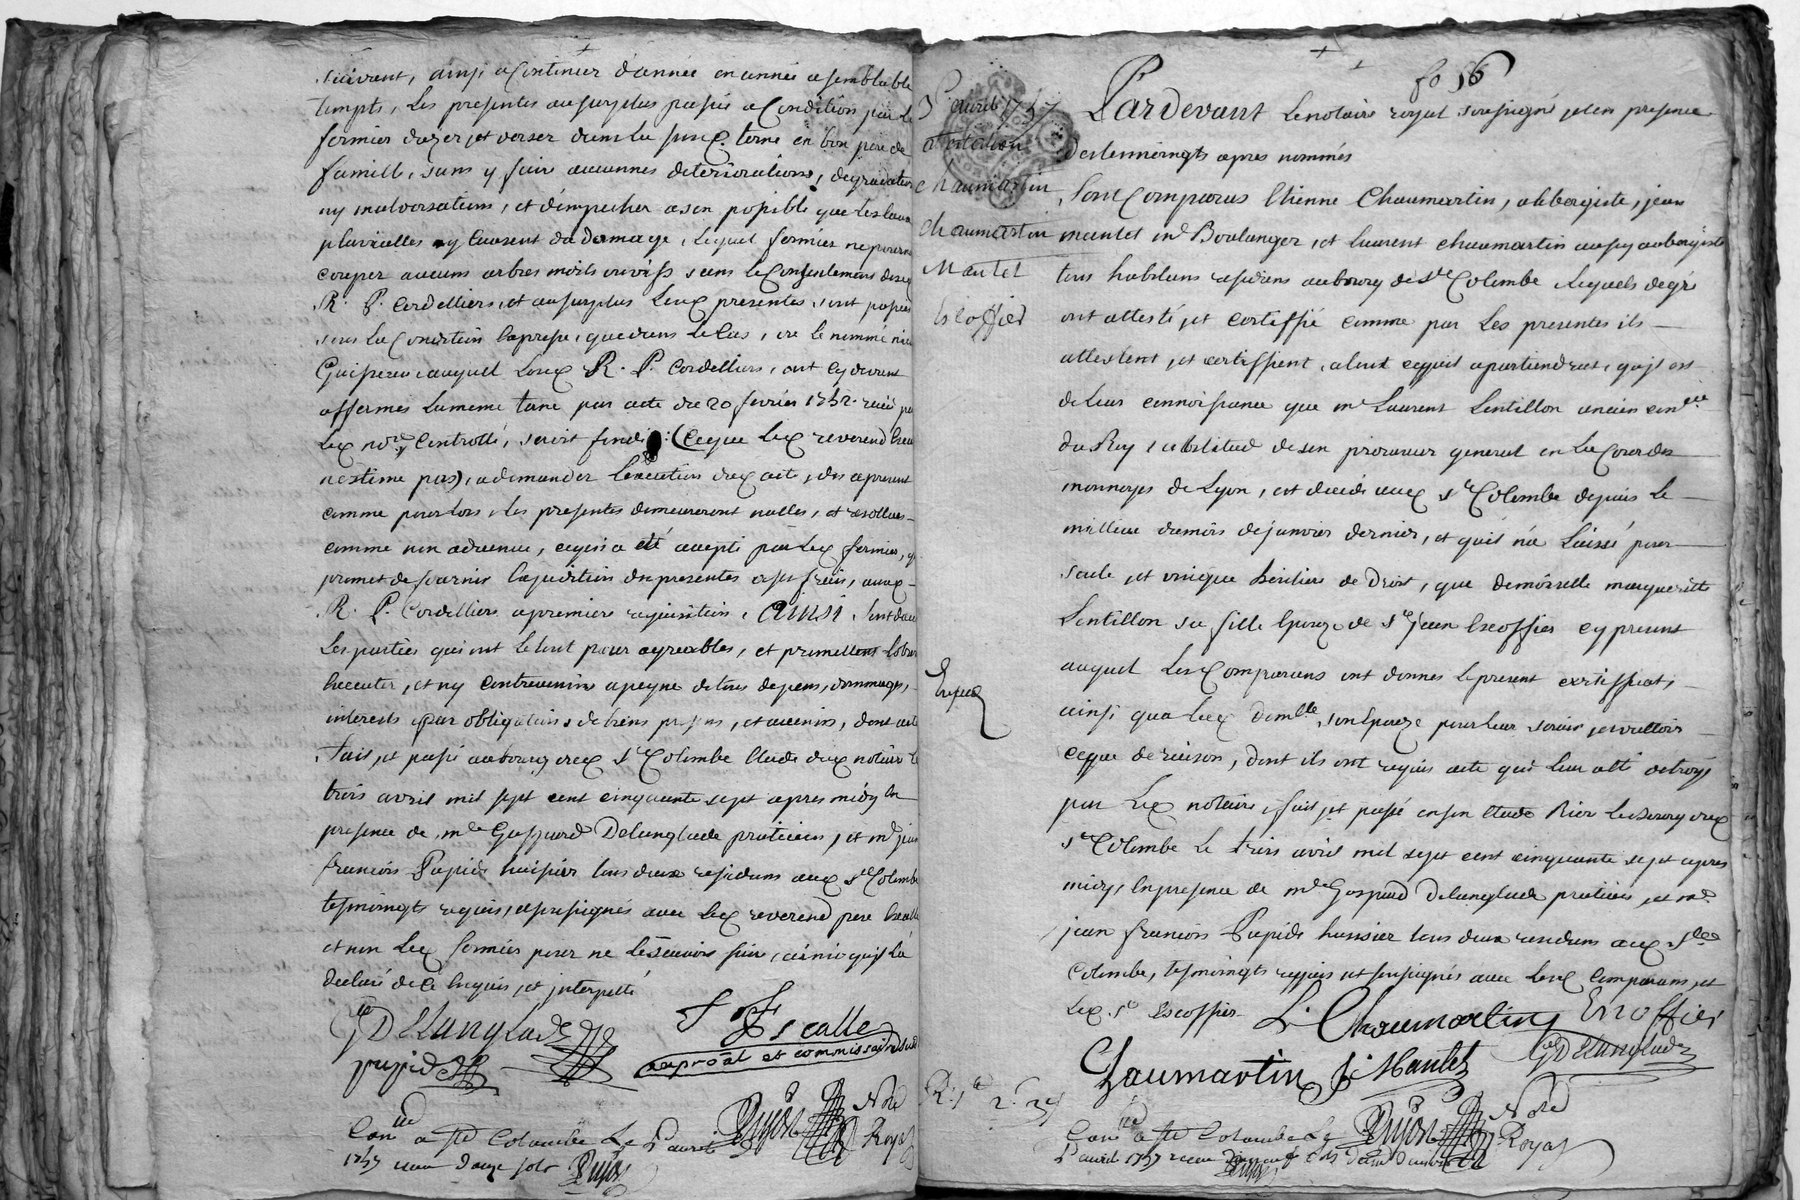 suivant, ainsi a Continuer d'année en année a semblable
tempts, Les presentes au surplus passés a Condition par le
fermier d'uzer et verser dans la susd. terre en bon pere de
famille, sans y faire aucunnes deteriorations, degradations
ny malversations, et d'empecher a son possible que les eaux
pluvialles n'y causent du domage, lequel fermier ne pourra
couper aucuns arbres morts ou vifs sans le Consentement desd
R. P. Cordelliers, et au surplus Leux presentes sont passées
sous la Condition Expresse, que dans le cas, ou le nommé
auquel Leux R. P. Cordelliers, ont cy devant
affermés La meme terre par acte du 20 fevrier 1752. recu par
Lex nore. Controllé, seroit fondé (Ceque Lex reverend
n'estime pas), a demander L'execution dux acte, des apresent
comme pour lors, Les presentes demeureront nulles, et resollues
comme non advenue, ce qui a eté accepté par Lex fermier, q
promet de fournir Expedition des presentes a ses frais, auxx
R. P. Cordelliers a premiere requisition, Ainsi, sont
Les parties qui ont le tout pour agreables, et promettent
Executer, et n'y Contrevenir a peyne de tous depens, dommages,
interests par obligations de biens presens, et avenirs, dont acte
fait, et passé au bourg dux Ste Colombe Etude dux notaire le
trois avril mil sept cent cinquante sept apres midy En
presence de me Gaspard Delanglade praticien, et me jean
francois Pupid huissier tous deux residans aux Ste Colombe
temoingts requis, et soussignés avec Lex reverend pere Escalle
et non Lex fermier pour ne le scavoir faire, ainsi qu'il l'a
declaré de ce Enquis, et interpellé
G DeLanglade
f f Escalle
pupid
approat et commissaire
Pujon Nore Royal
Conllé a Ste Colombe Le avril
1757 recu douze sols Pujon
fo 56
3 avril 1757
attestation
Chaumartin
Chaumartin
Mantel
Escoffier
Expedié
Pardevant Le notaire royal soussigné et en presence
des temoingts apres nommés
Sont Comparus Etienne Chaumartin, aubergiste, jean
mantel md Boulanger, et Laurent Chaumartin aussy aubergiste
tous habitans residans au bourg de Ste Colombe lequels de gré
ont attesté, et certiffié comme par Les presentes ils
attestent, et certiffient, a tout ce qu'il apartiendrat, qu'il est
de Leur connoissance que me Laurent Lentillon ancien
du Roy, substitud de son procureur general en la Cour des
monnoyes de Lyon, est decedé aux Ste Colombe depuis Le
millieu du mois de janvier dernier, et qu'il n'a Laissé pour
seule, et unique heritiere de Droit, que demoiselle margueritte
Lentillon sa fille Epouze de Sr jean Escoffier cy present
auquel Les Comparans ont donnes le present certifficat
ainsi qua Lex demlle son Epouze pour leur servir, et valloir
ceque de raison, dont ils ont requis acte qui leur a été octroyé
par Lex notaire, fait, et passé en son Etude Rière Le bourg dux
Ste Colombe Le trois avril mil sept cent cinquante sept apres
midy, En presence de me Gaspard Delanglade praticien, et me
jean francois Pupid huissier tous deux residans aux Ste
Colombe, temoingts requis, et soussignés avec Leux Comparans, et
Lex Sr Escoffier
L. Chaumartin Escoffier
Chaumartin J Mantel G DeLanglade
Pujon Nore Royal
Conllé a Ste Colombe Le
avril 1757 recu
Pujon